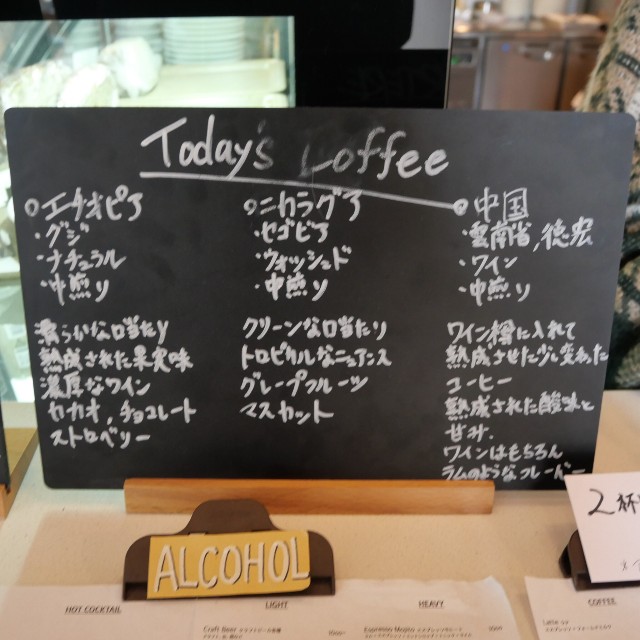 Today's Coffee
○エチオピア
・グジ
・ナチュラル
・中煎り
滑らかな口当たり
熟成された果実味
濃厚なワイン
カカオ,チョコレート
ストロベリー
○ニカラグア
・セゴビア
・ウォッシュド
・中煎り
クリーンな口当たり
トロピカルなニュアンス
グレープフルーツ
マスカット
○中国
・雲南省,徳宏
・ワイン
・中煎り
ワイン樽に入れて
熟成させた少し変わった
コーヒー
熟成された酸味と
甘み.
ワインはもちろん
ラムのようなフレーバー
2杯
ALCOHOL
HOT COCKTAIL
LIGHT
Craft Beer
HEAVY
Espresso Mojito
COFFEE
Latte